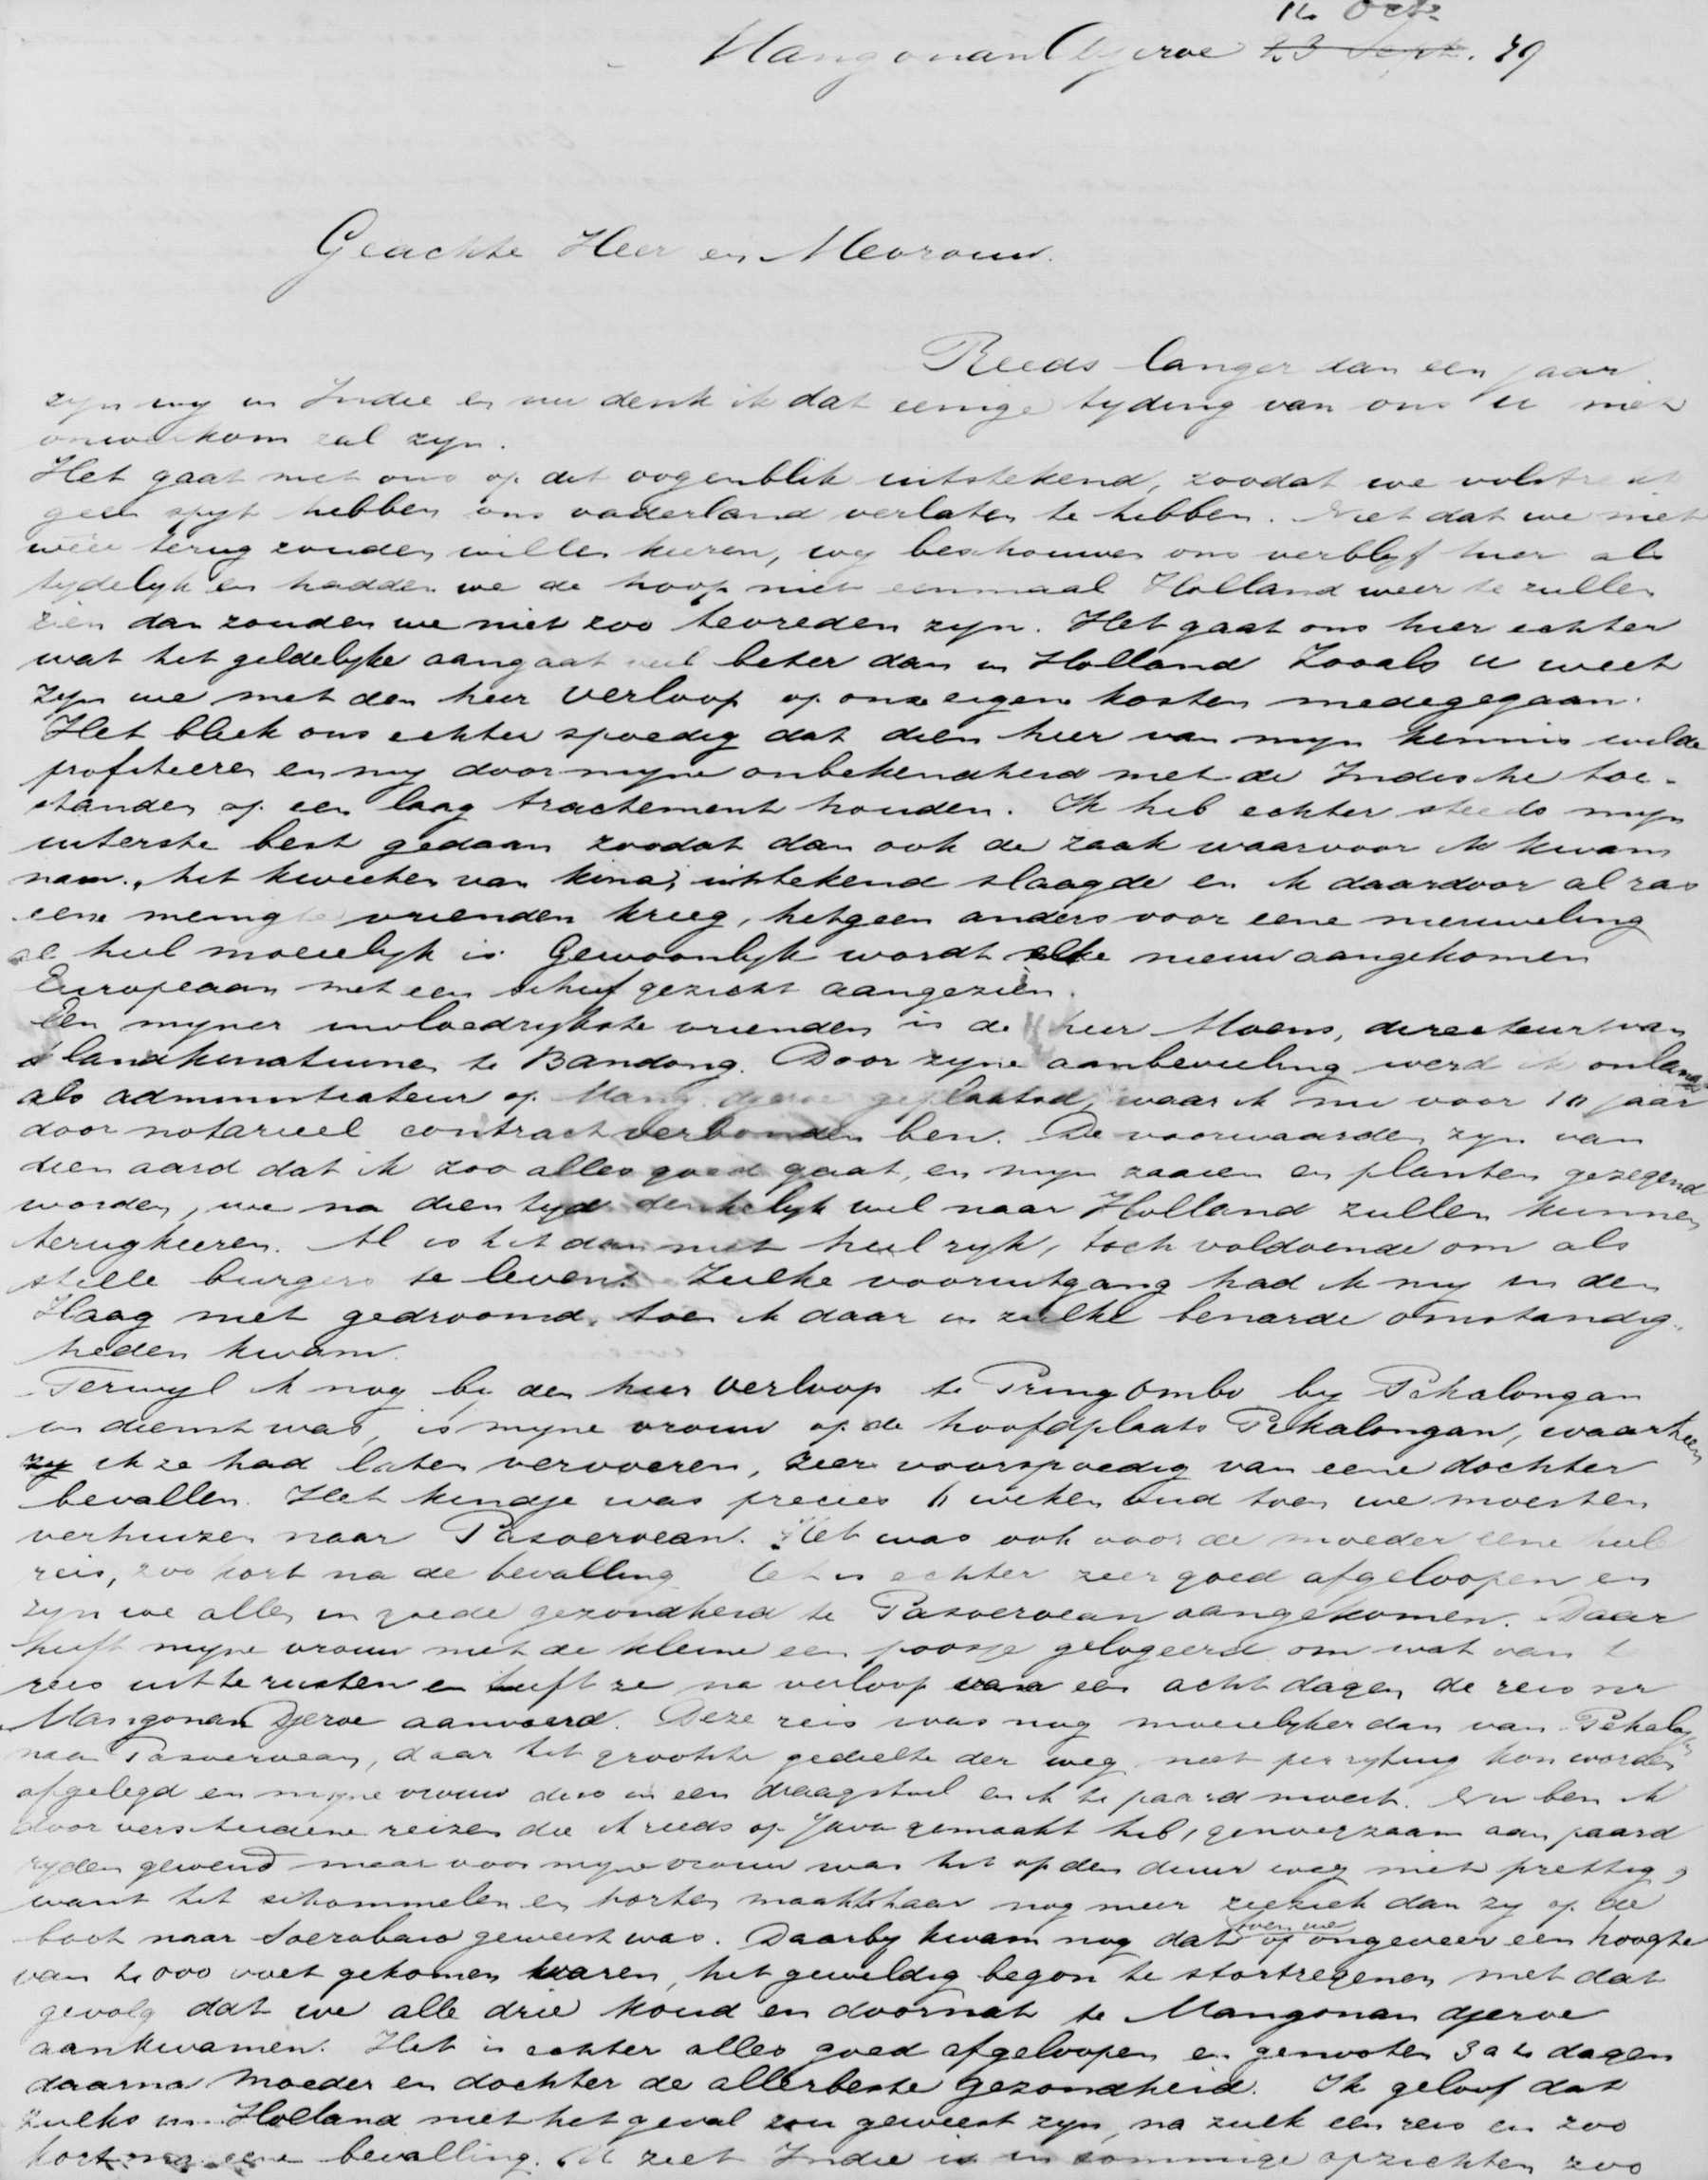 14 Oct.
Mangonan Djeroe 23 Sept. 79
Geachte Heer en Mevrouw.
Reeds langer dan een jaar
zijn wij in Indie en nu denk ik dat eenige tyding van ons u niet
onwelkom zal zyn.
Het gaat met ons op dit oogenblik uitstekend, zoodat we volstrekt
geen spyt hebben ons vaderland verlaten te hebben. Niet dat we niet
weer terug zouden willen keeren, wy beschouwen ons verblyf hier als
tydelyk en hadden we de hoop niet eenmaal Holland weer te zullen
zien dan zouden we niet zoo tevreden zyn. Het gaat ons hier echter
wat het geldelyke aangaat veel beter dan in Holland Zooals u weet
zyn we met den heer Verloop op onze eigene kosten medegegaan.
Het bleek ons echter spoedig dat dien heer van myn kennis wilde
profiteeren en my door myne onbekendheid met de Indische toe-
standen op een laag tractement houden. Ik heb echter steeds myn
uiterste best gedaan zoodat dan ook de zaak waarvoor ik kwam
nam. het kweeken van kina, uitstekend slaagde en ik daardoor al ras
eene menigte vrienden kreeg, hetgeen anders voor eene nieuweling
al heel moeielyk is. Gewoonlyk wordt elke nieuw aangekomen
Europeaan met een scheef gezicht aangezien.
Een myner invloedrykste vrienden is de heer Moens, directeur van
's lands kinatuinen te Bandong. Door zyne aanbeveeling werd ik onlangs
als administrateur op Mang. djeroe geplaatsd, waar ik nu voor 10 jaar
door notarieel contract verbonden ben. De voorwaarden zyn van
dien aard dat ik zoo alles goed gaat, en myn zaaien en planten gezegend
worden, we na dien tyd denkelyk wel naar Holland zullen kunnen
terugkeeren. Al is het dan niet heel ryk, toch voldoende om als
stille burgers te leven. Zulke vooruitgang had ik my in den
Haag niet gedroomd, toen ik daar in zulke benarde omstandig-
heden kwam.
Terwyl ik nog by den heer Verloop te Pringombo by Pekalongan
in dienst was, is myne vrouw op de hoofdplaats Pekalongan, waarheen
zy ik ze had laten vervoeren, zeer voorspoedig van eene dochter
bevallen. Het kindje was precies 6 weken oud toen we moesten
verhuizen naar Pasoeroean. Het was ook voor de moeder eene heele
reis, zoo kort na de bevalling. Het is echter zeer goed afgeloopen en
zyn we allen in goede gezondheid te Pasoeroean aangekomen. Daar
heeft myne vrouw met de kleine een poosje gelogeerd om wat van de
reis uit te rusten en heeft ze na verloop van een acht dagen de reis nr
Mangonan Djeroe aanvaard. Deze reis was nog moeielyker dan van Pekalongan
naar Pasoeroean, daar het grootste gedeelte der weg niet per rytuig kon worden
afgelegd en myne vrouw dus in een draagstoel en ik te paard moest. Nu ben ik
door verscheidene reizen die ik reeds op Java gemaakt heb, genoegzaam aan paard
ryden gewend maar voor myne vrouw was het op den duur weg niet prettig,
want het schommelen en horten maakte haar nog meer zeeziek dan zy op de
boot naar Soerabaia geweest was. Daarby kwam nog dat toen we op ongeveer een hoogte
van 4000 voet gekomen waren, het geweldig begon te stortregenen met dat
gevolg dat we alle drie koud en doornat te Mangonan djeroe
aankwamen. Het is echter alles goed afgeloopen en genoten 3 a 4 dagen
daarna moeder en dochter de allerbeste gezondheid. Ik geloof dat
zulks in Holland niet het geval zou geweest zyn, na zulk een reis en zoo
kort na eene bevalling. U ziet Indie is in sommige opzichten zoo